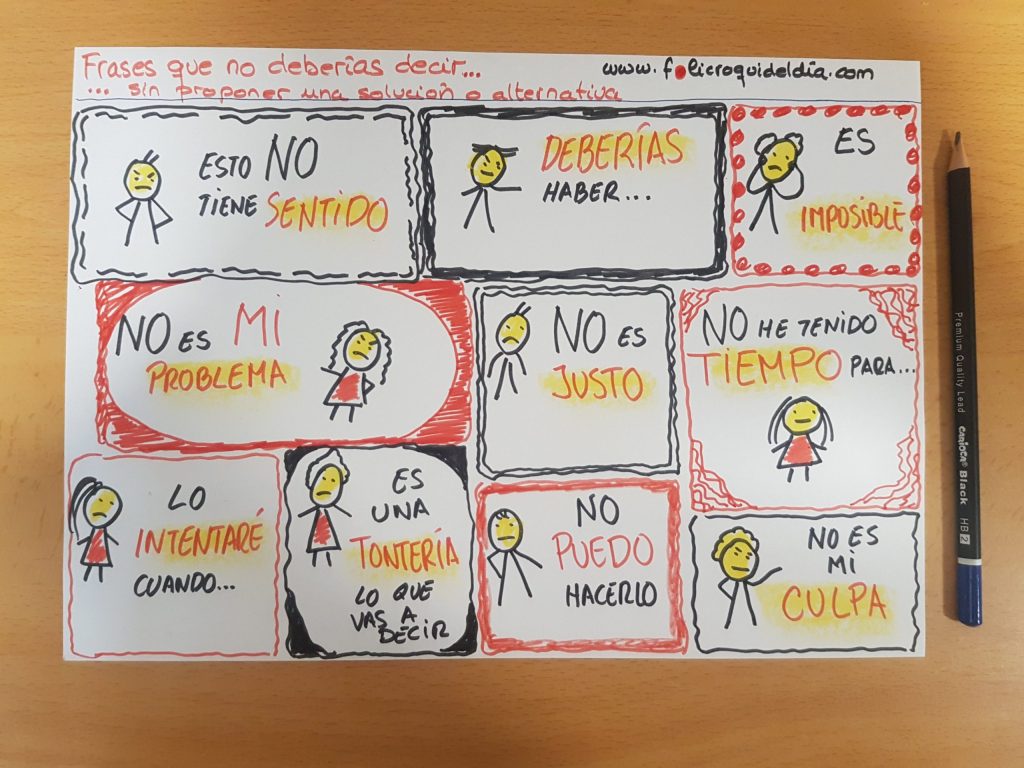 Frases que no deberías decir...
www.folicroquideldia.com
... sin proponer una solución o alternativa
ESTO NO
TIENE SENTIDO
DEBERÍAS
HABER...
ES
IMPOSIBLE
NO ES MI
PROBLEMA
NO ES
JUSTO
NO HE TENIDO
TIEMPO PARA...
LO
INTENTARÉ
CUANDO...
ES
UNA
TONTERÍA
LO QUE
VAS A
DECIR
NO
PUEDO
HACERLO
NO ES
MI
CULPA
Premium Quality Lead
CARIOCA® Black
HB 2